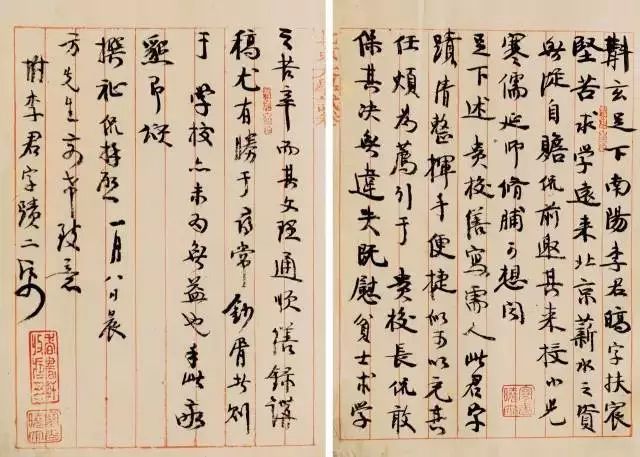 斠玄足下南陽李君暠字扶宸
堅苦求學遠来北京薪水之資
無從自贍侃前邀其来授小兒
寒儒延師脩脯可想聞
足下述貴校繕寫需人此君字
蹟清整揮手便捷似可以充其
任煩為薦引于 貴校長侃敢
保其决無違失既慰貧士求學
之苦辛而其文理通順繕録講
稿尤有勝于尋常鈔胥者则
于 學校亦未為無益也手此敬
懇即頌
撰祉侃拜啓 一月八日晨
方先生前希致意
附李君字蹟二紙